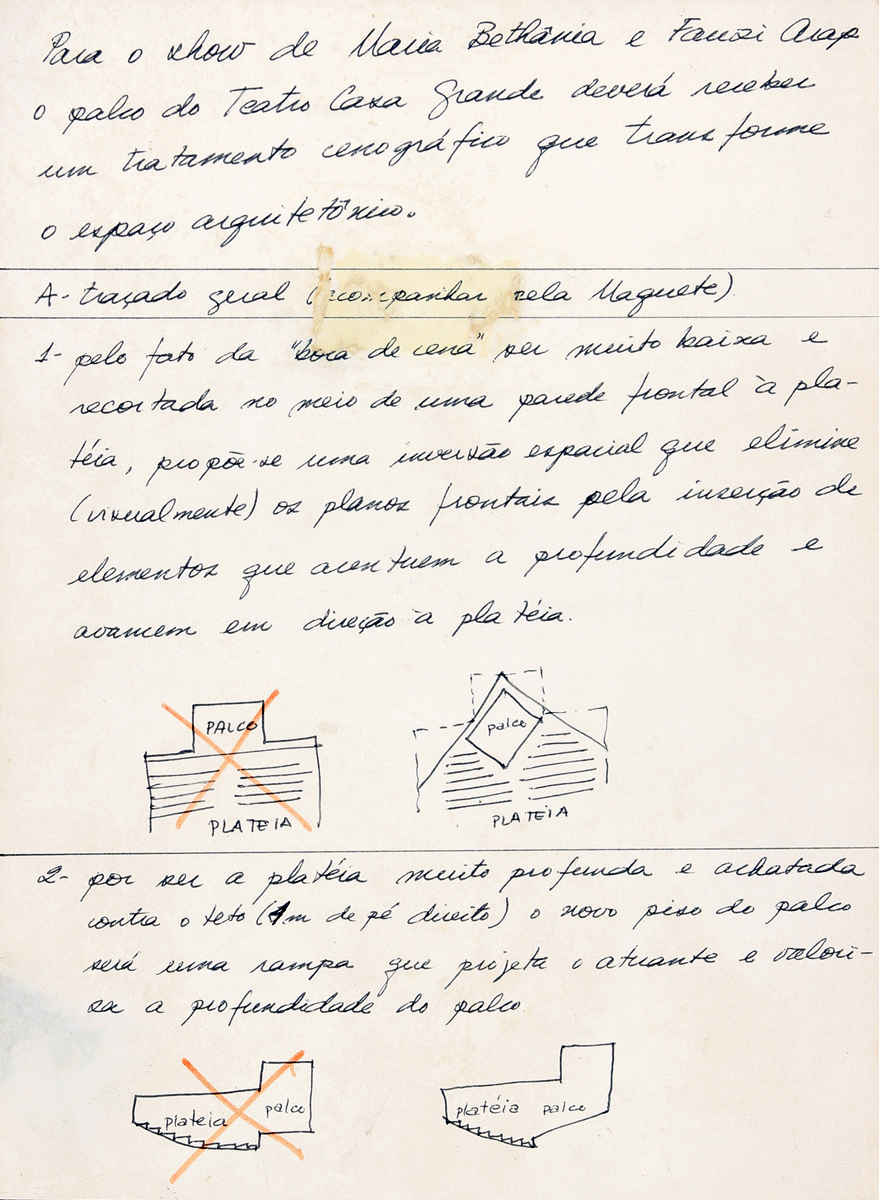 Para o show de Maria Bethânia e Fauzi Arap
o palco do Teatro Casa Grande deverá receber
um tratamento cenográfico que transforme
o espaço arquitetônico.
A- traçado geral (acompanhar pela Maquete)
1- pelo fato da "boca de cena" ser muito baixa e
recortada no meio de uma parede frontal à pla-
téia, propõe-se uma inversão espacial que elimine
(visualmente) os planos frontais pela inserção de
elementos que acentuem a profundidade e
avancem em direção à platéia.
PALCO
PLATEIA
palco
PLATEIA
2- por ser a platéia muito profunda e achatada
contra o teto (1m de pé direito) o novo piso do palco
será uma rampa que projeta o atuante e valori-
za a profundidade do palco
plateia palco
platéia palco